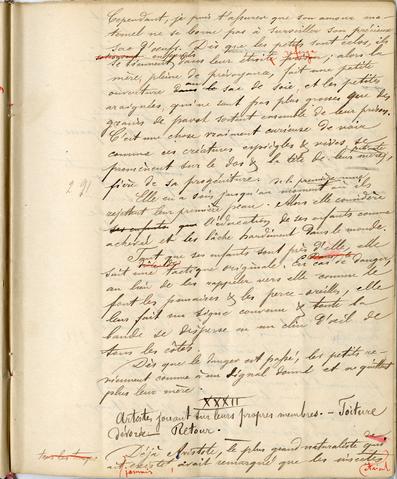 Cependant, je puis t'assurer que son amour ma-
ternel ne se borne pas à surveiller son précieux
sac d'oeufs. Dès que les petits sont éclos, ils
tiennent dans leur étroite ; alors la
mère, pleine de prévoyance, fait une petite
ouverture au sac de soie, et les petites
araignées, qui ne sont pas plus grosses que des
grains de pavot sortent ensemble de leur prison.
C'est une chose vraiment curieuse de voir
comme ces créatures espiègles & vives se
promènent sur le dos & la tête de leur mère,
fière de sa progéniture.
291
Elle en a soin jusqu'au moment où ils
rejettent leur première peau. Alors elle considère
l'éducation de ses enfants comme
achevée et les lâche hardiment dans le monde.
Tant que ses enfants sont près d'elle, elle
suit une tactique originale. En cas de danger,
au lieu de les rappeler vers elle comme le
font les punaises & les perce-oreilles, elle
leur fait un signe convenu & toute la
bande se disperse en un clin d'oeil de
tous les côtés.
Dès que le danger est passé, les petits re-
viennent comme à un signal donné et ne quittent
plus leur mère.
XXXII
Artistes jouant sur leurs propres membres. - Toiture
dévorée. Retour.
Déjà Aristote, le plus grand naturaliste qui
ait jamais existé, avait remarqué que les insectes